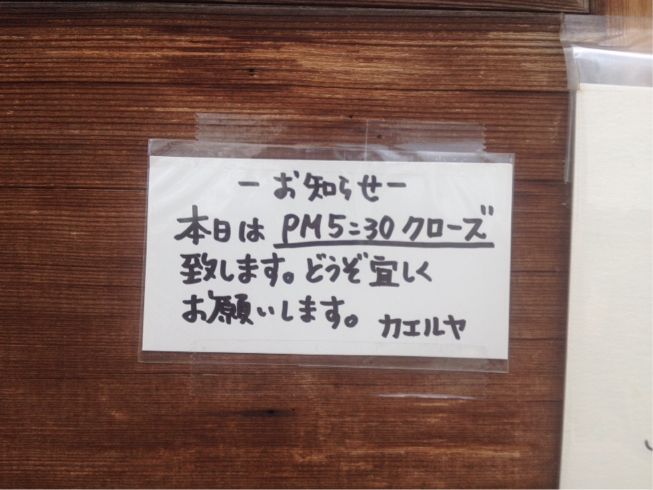 ーお知らせー
本日はPM5:30クローズ
致します。どうぞ宜しく
お願いします。カエルヤ